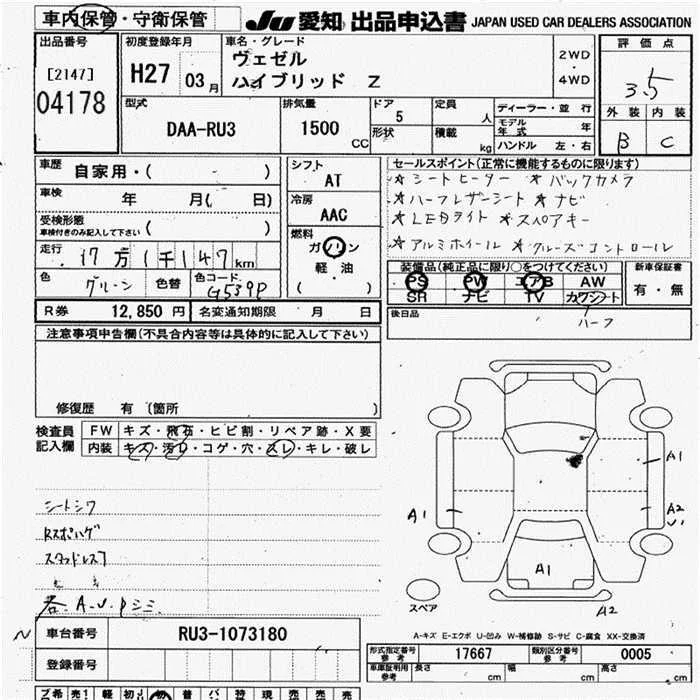 車内保管・守衛保管
JU 愛知 出品申込書 JAPAN USED CAR DEALERS ASSOCIATION
出品番号
[2147]
04178
初度登録年月
H27 03月
車名・グレード
ヴェゼル
ハイブリッド Z
2WD
・
4WD
評価点
3.5
外装 内装
B C
型式
DAA-RU3
排気量
1500 CC
ドア
5
形状
定員 人
積載 kg
ディーラー・並行
モデル年式 年
ハンドル 左・右
車歴 自家用・( )
車検 年 月( 日)
受検形態
車検付きのみ記入して下さい ( )
走行 万1千147km
色 グリーン 色替 色コード G539P
シフト
AT
冷房
AAC
燃料
ガソリン
軽・油
( )
セールスポイント(正常に機能するものに限ります)
★シートヒーター ★バックカメラ
★ハーフレザーシート ★ナビ
★LEDライト ★スペアキー
★アルミホイール ★クルーズコントロール
装備品(純正品に限り○をつけてください)
PS PW エアB AW
SR ナビ TV カワシート
新車保証書
有・無
後日品
ハーフ
R券 12,850 円 名変通知期限 月 日
注意事項申告欄(不具合内容等は具体的に記入して下さい)
修復歴 有 〔箇所 〕
検査員記入欄
FW キズ・飛石・ヒビ割・リペア跡・X要
内装 キズ・汚レ・コゲ・穴・スレ・キレ・破レ
シートシワ
スタッドレス
各A.U.Pシミ
A1
A1
A2
U1
A1
A2
スペア
A-キズ E-エクボ U-凹み W-補修跡 S-サビ C-腐食 XX-交換済
車台番号 RU3-1073180
登録番号
形式指定番号
参考
17667
類別区分番号
参考
0005
車庫証明用
参考
長さ cm 幅 cm 高さ cm